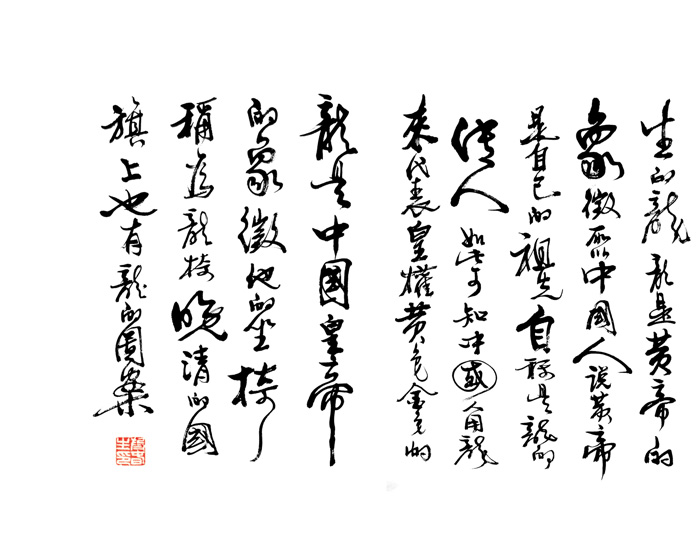 生的龍龍是黃帝的
象徵所以中國人說黃帝
是自己的祖先自稱是龍的
傳人如此可知中國人用龍
來代表皇權黃色金色的
龍是中國皇帝
的象徵他的坐椅
稱為龍椅晚清的國
旗上也有龍的圖案